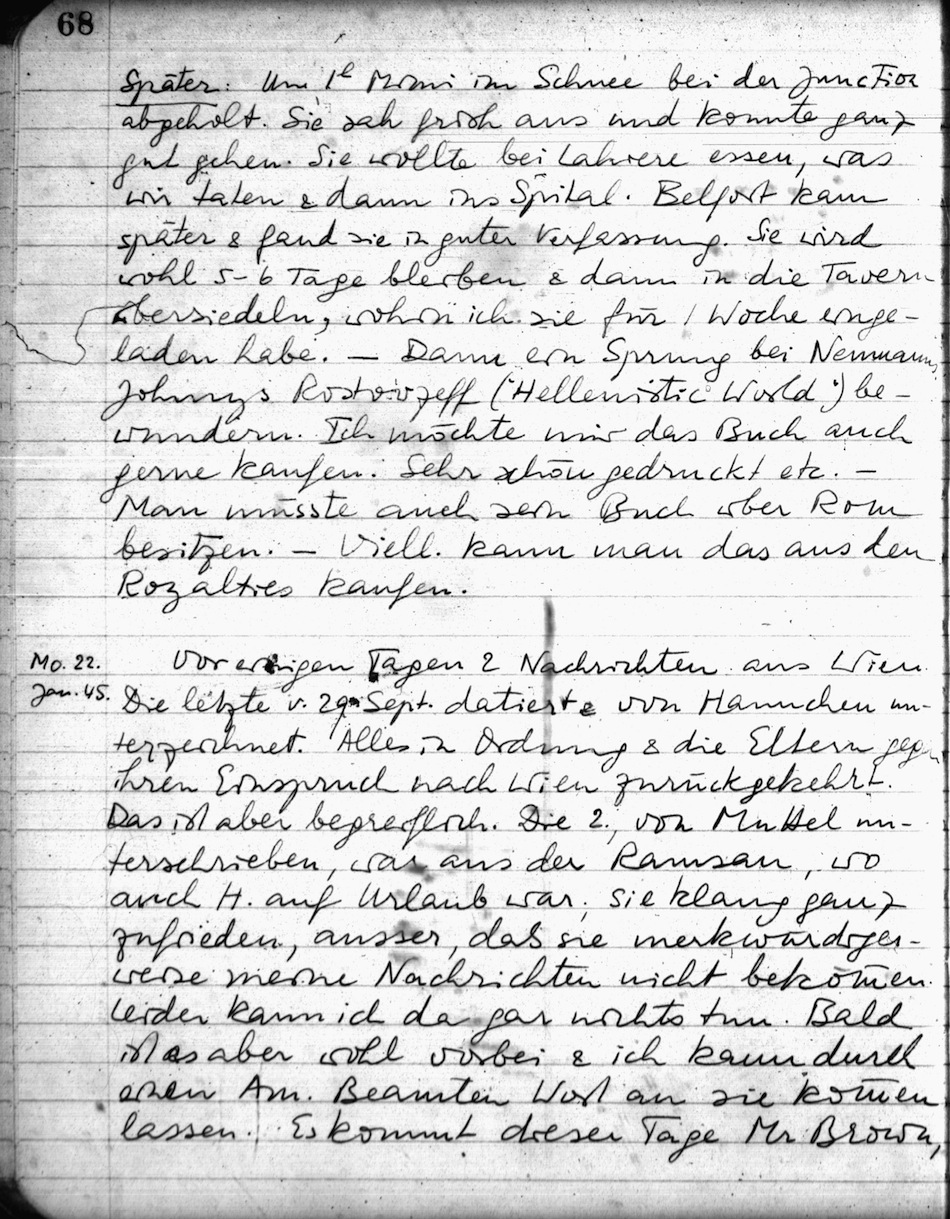 68
Später: Um 1h Mimi im Schnee bei der Junction
abgeholt. Sie sah frisch aus und konnte ganz
gut gehen. Sie wollte bei Lahiere essen, was
wir taten & dann ins Spital. Belfort kam
später & fand sie in guter Verfassung. Sie wird
wohl 5-6 Tage bleiben & dann in die Tavern
übersiedeln, wohin ich sie für 1 Woche einge-
laden habe. — Dann ein Sprung bei Neumanns,
Johnnys Rostovzeff ("Hellenistic World") be-
wundern. Ich möchte mir das Buch auch
gerne kaufen. Sehr schön gedruckt etc. —
Man müsste auch sein Buch über Rom
besitzen. — Viell. kann man das aus den
Royalties kaufen.
Mo. 22.
Jan. 45.
Vor einigen Tagen 2 Nachrichten aus Wien.
Die letzte v. 29. Sept. datierte von Hannchen un-
terzeichnet. Alles in Ordnung & die Eltern gegen
ihren Einspruch nach Wien zurückgekehrt.
Das ist aber begreiflich. Die 2., von Muttel un-
terschrieben, war aus der Ramsau, wo
auch H. auf Urlaub war; sie klang ganz
zufrieden, ausser, daß sie merkwürdiger-
weise meine Nachrichten nicht bekom̄en.
Leider kann ich da gar nichts tun. Bald
ist es aber wohl vorbei & ich kann durch
einen Am. Beamten Wort an sie kom̄en
lassen. Es kommt dieser Tage Mr Brown,